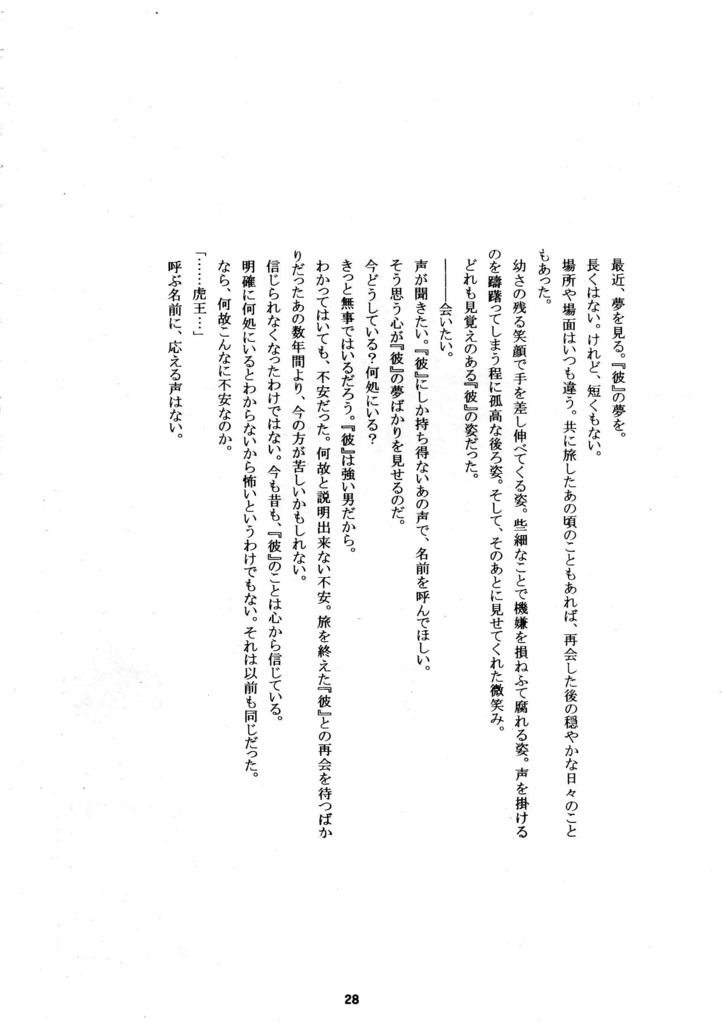 最近、夢を見る。『彼』の夢を。
長くはない。けれど、短くもない。
場所や場面はいつも違う。共に旅したあの頃のこともあれば、再会した後の穏やかな日々のこと
もあった。
幼さの残る笑顔で手を差し伸べてくる姿。些細なことで機嫌を損ねふて腐れる姿。声を掛ける
のを躊躇ってしまう程に孤高な後ろ姿。そして、そのあとに見せてくれた微笑み。
どれも見覚えのある『彼』の姿だった。
――会いたい。
声が聞きたい。『彼』にしか持ち得ないあの声で、名前を呼んでほしい。
そう思う心が『彼』の夢ばかりを見せるのだ。
今どうしている？何処にいる？
きっと無事ではいるだろう。『彼』は強い男だから。
わかってはいても、不安だった。何故と説明出来ない不安。旅を終えた『彼』との再会を待つばか
りだったあの数年間より、今の方が苦しいかもしれない。
信じられなくなったわけではない。今も昔も、『彼』のことは心から信じている。
明確に何処にいるとわからないから怖いというわけでもない。それは以前も同じだった。
なら、何故こんなに不安なのか。
「……虎王…」
呼ぶ名前に、応える声はない。
28